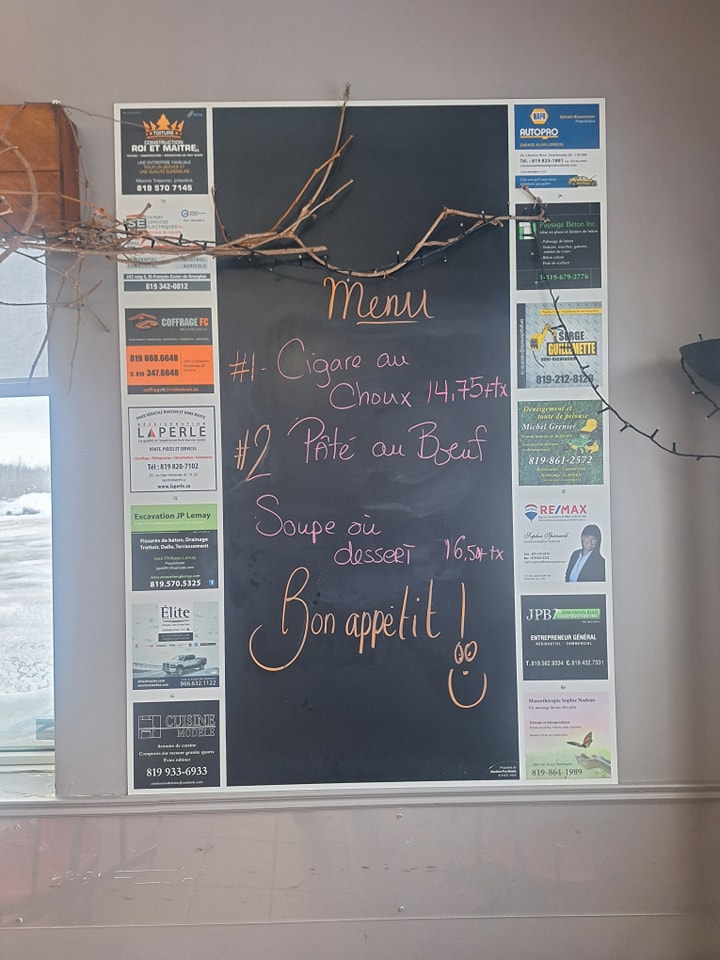 Menu
#1- Cigare au
Choux 14,75+tx
#2 Pâté au Bœuf
Soupe où
dessert 16,50+tx
Bon appétit!
TOITURE
CONSTRUCTION
ROI ET MAITRE
UNE ENTREPRISE FAMILIALE
POUR UN SERVICE ET
UNE QUALITÉ SUPÉRIEURE
819 570 7145
EXPERT
SERVICES
ÉLECTRIQUES
AGRICOLE
819 342-0812
COFFRAGE FC
819 868.6648
C. 819 347.6648
RÉFRIGÉRATION
LAPERLE
VENTE, PIÈCES ET SERVICES
Tél : 819 820-7102
www.laperle.ca
Excavation JP Lemay
Fissures de béton, Drainage
Trottoir, Dalle, Terrassement
Jean-Philippe Lemay
819.570.5325
Élite
866.632.1122
CUISINE
MODÈLE
Armoire de cuisine
Comptoirs sur mesure granite quartz
Évierédinet
819 933-6933
NAPA
AUTOPRO
Tél. : 819 823-1881
Paysage Béton Inc.
Mise en place et finition de béton
1-819-679-2776
SERGE
GUILLEMETTE
819-212-8129
Déneigement et
tonte de pelouse
Michel Grenier
819-861-2572
RE/MAX
Sophia Spénard
JPB
ENTREPRENEUR GÉNÉRAL
RÉSIDENTIEL - COMMERCIAL
T. 819.562.9334 C. 819.432.7331
Massothérapie Sophie Nadeau
819-864-1989